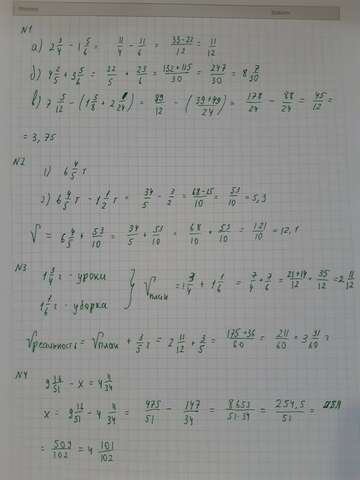 N1
а) 2 3/4 - 1 5/6 = 11/4 - 11/6 = 33-22/12 = 11/12
б) 4 2/5 + 3 5/6 = 22/5 + 23/6 = 132+115/30 = 247/30 = 8 7/30
в) 7 5/12 - (1 5/8 + 2 1/24) = 89/12 - (39+49/24) = 178/24 - 88/24 = 45/12 =
= 3,75
N2
1) 6 4/5 т
2) 6 4/5 т - 1 1/2 т = 34/5 - 3/2 = 68-15/10 = 53/10 = 5,3
= 6 4/5 + 53/10 = 34/5 + 53/10 = 68/10 + 53/10 = 121/10 = 12,1
N3
1 3/4 г - уроки
1 1/6 г - уборка
план = 1 3/4 + 1 1/6 = 7/4 + 7/6 = 21+14/12 = 35/12 = 2 11/12
реальность = план + 3/5 г = 2 11/12 + 3/5 = 175+36/60 = 211/60 = 3 31/60 г
N4
9 16/51 - x = 4 11/34
x = 9 16/51 - 4 11/34 = 475/51 - 147/34 = 8653/51·34 = 254,5/51 =
= 509/102 = 4 101/102